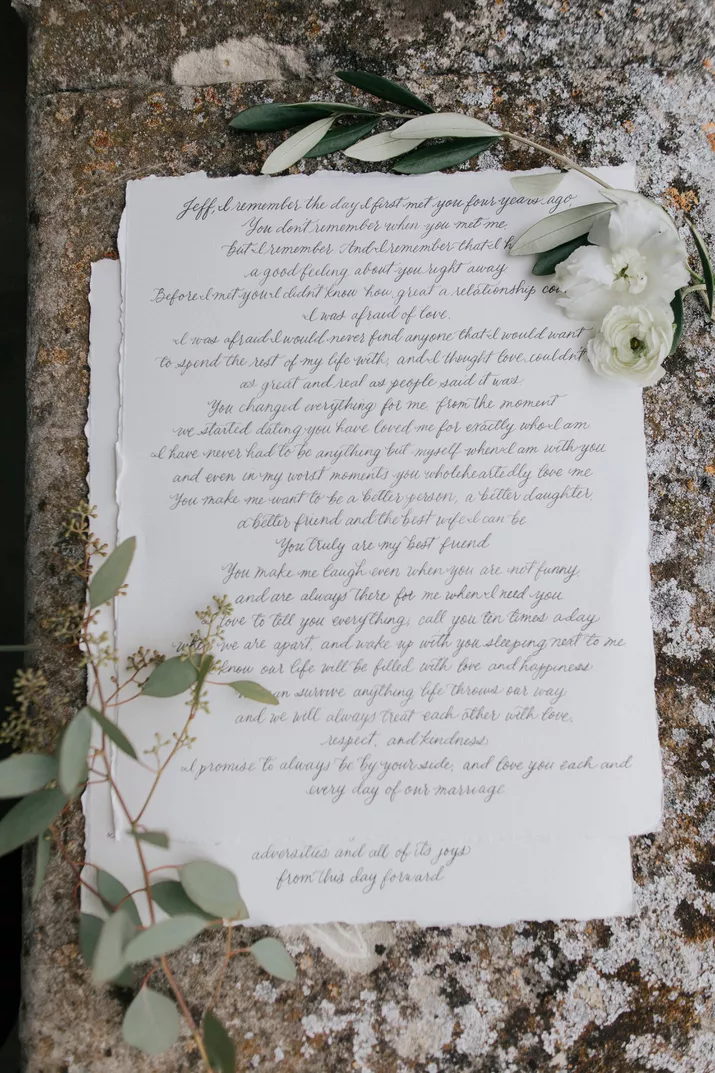 Jeff, I remember the day I first met you four years ago
You don't remember when you met me,
but I remember. And I remember that I
a good feeling about you right away
Before I met you I didn't know how great a relationship
I was afraid of love.
I was afraid I would never find anyone that I would want
to spend the rest of my life with, and I thought love couldn't
as great and real as people said it was
You changed everything for me, from the moment
we started dating you have loved me for exactly who I am
I have never had to be anything but myself when I am with you
and even in my worst moments you wholeheartedly love me
You make me want to be a better person, a better daughter,
a better friend and the best wife I can be
You truly are my best friend
You make me laugh even when you are not funny,
and are always there for me when I need you
love to tell you everything, call you ten times a day
we are apart, and wake up with you sleeping next to me
know our life will be filled with love and happiness
survive anything life throws our way
and we will always treat each other with love,
respect, and kindness
I promise to always be by your side, and love you each and
every day of our marriage
adversities and all of its joys
from this day forward